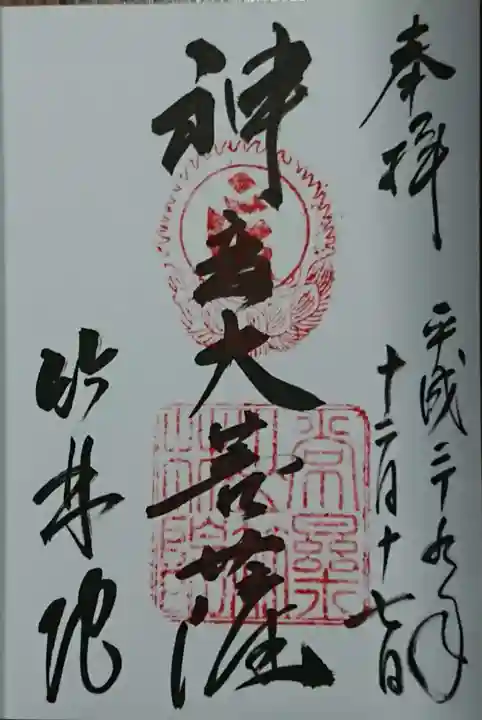 奉拝
平成二十九年
十二月十七日
神変大菩薩
竹林院